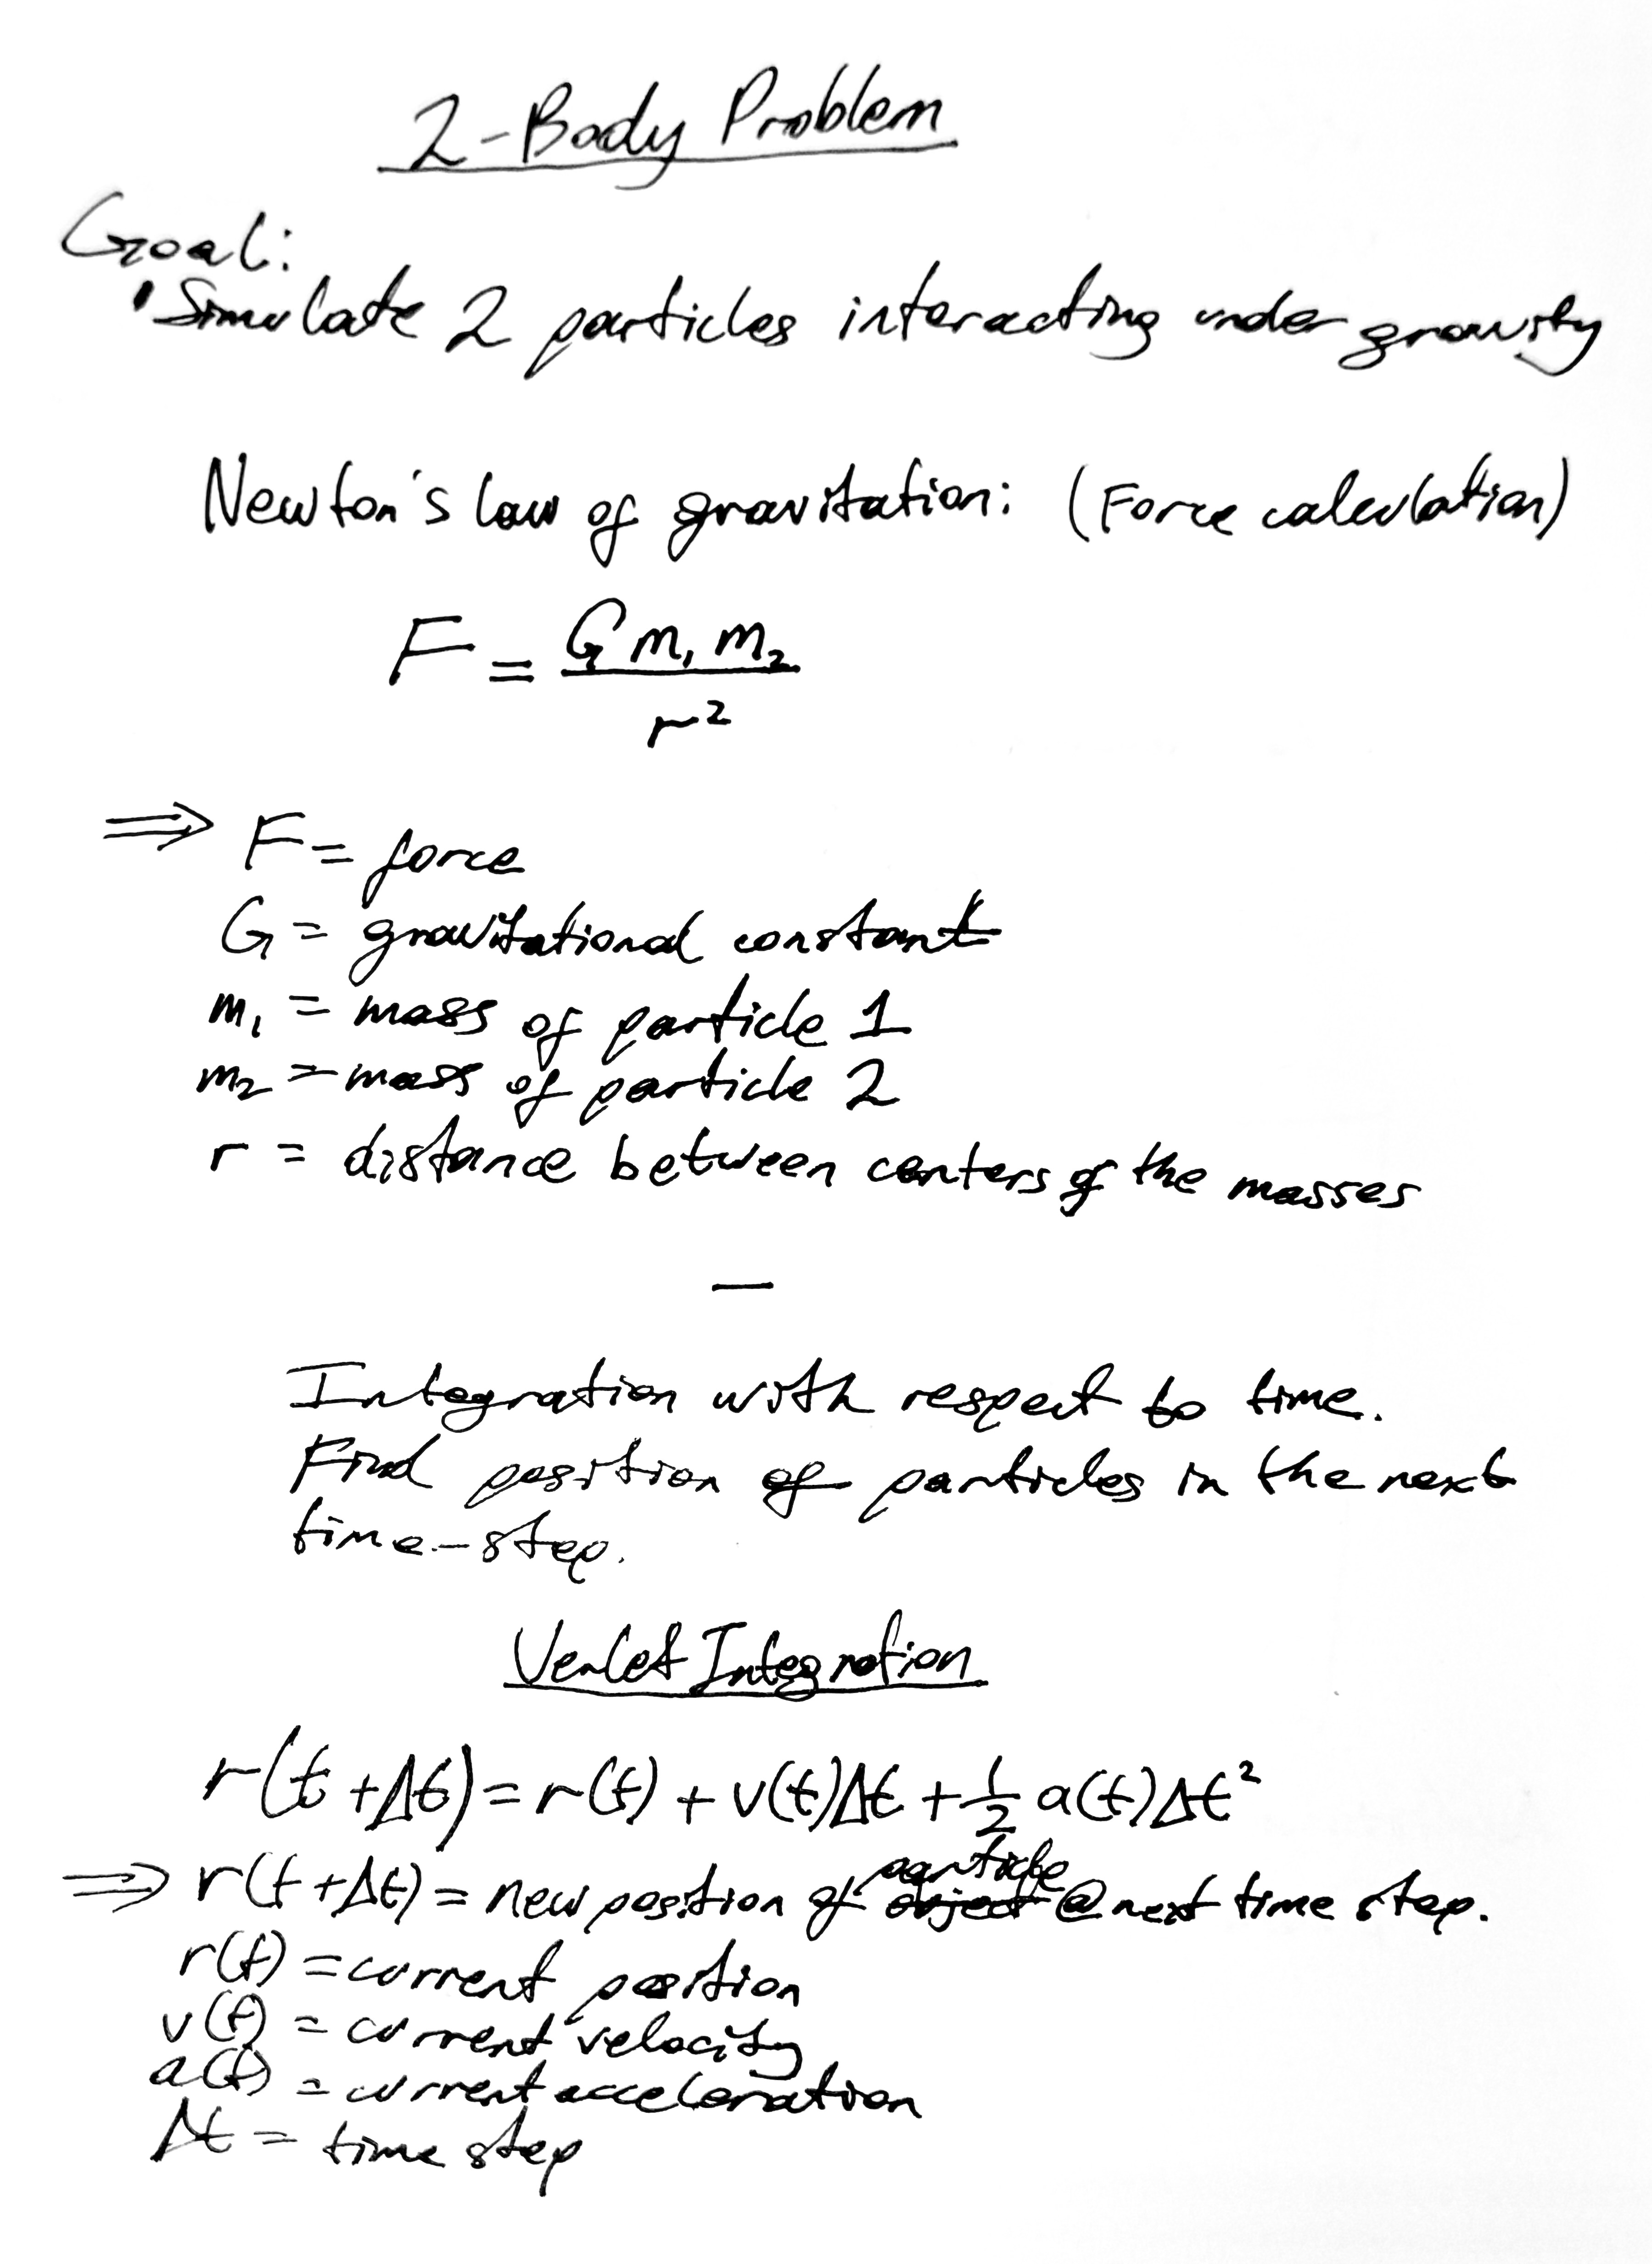 2-Body Problem
Goal:
• Simulate 2 particles interacting under gravity
Newton's law of gravitation: (Force calculation)
F = G m₁ m₂ / r²
⇒ F = force
G = gravitational constant
m₁ = mass of particle 1
m₂ = mass of particle 2
r = distance between centers of the masses
—
Integration with respect to time.
Find position of particles in the next
time-step.
Verlet Integration
r(t + Δt) = r(t) + v(t)Δt + ½ a(t)Δt²
⇒ r(t + Δt) = new position of particle @ next time step.
r(t) = current position
v(t) = current velocity
a(t) = current acceleration
Δt = time step